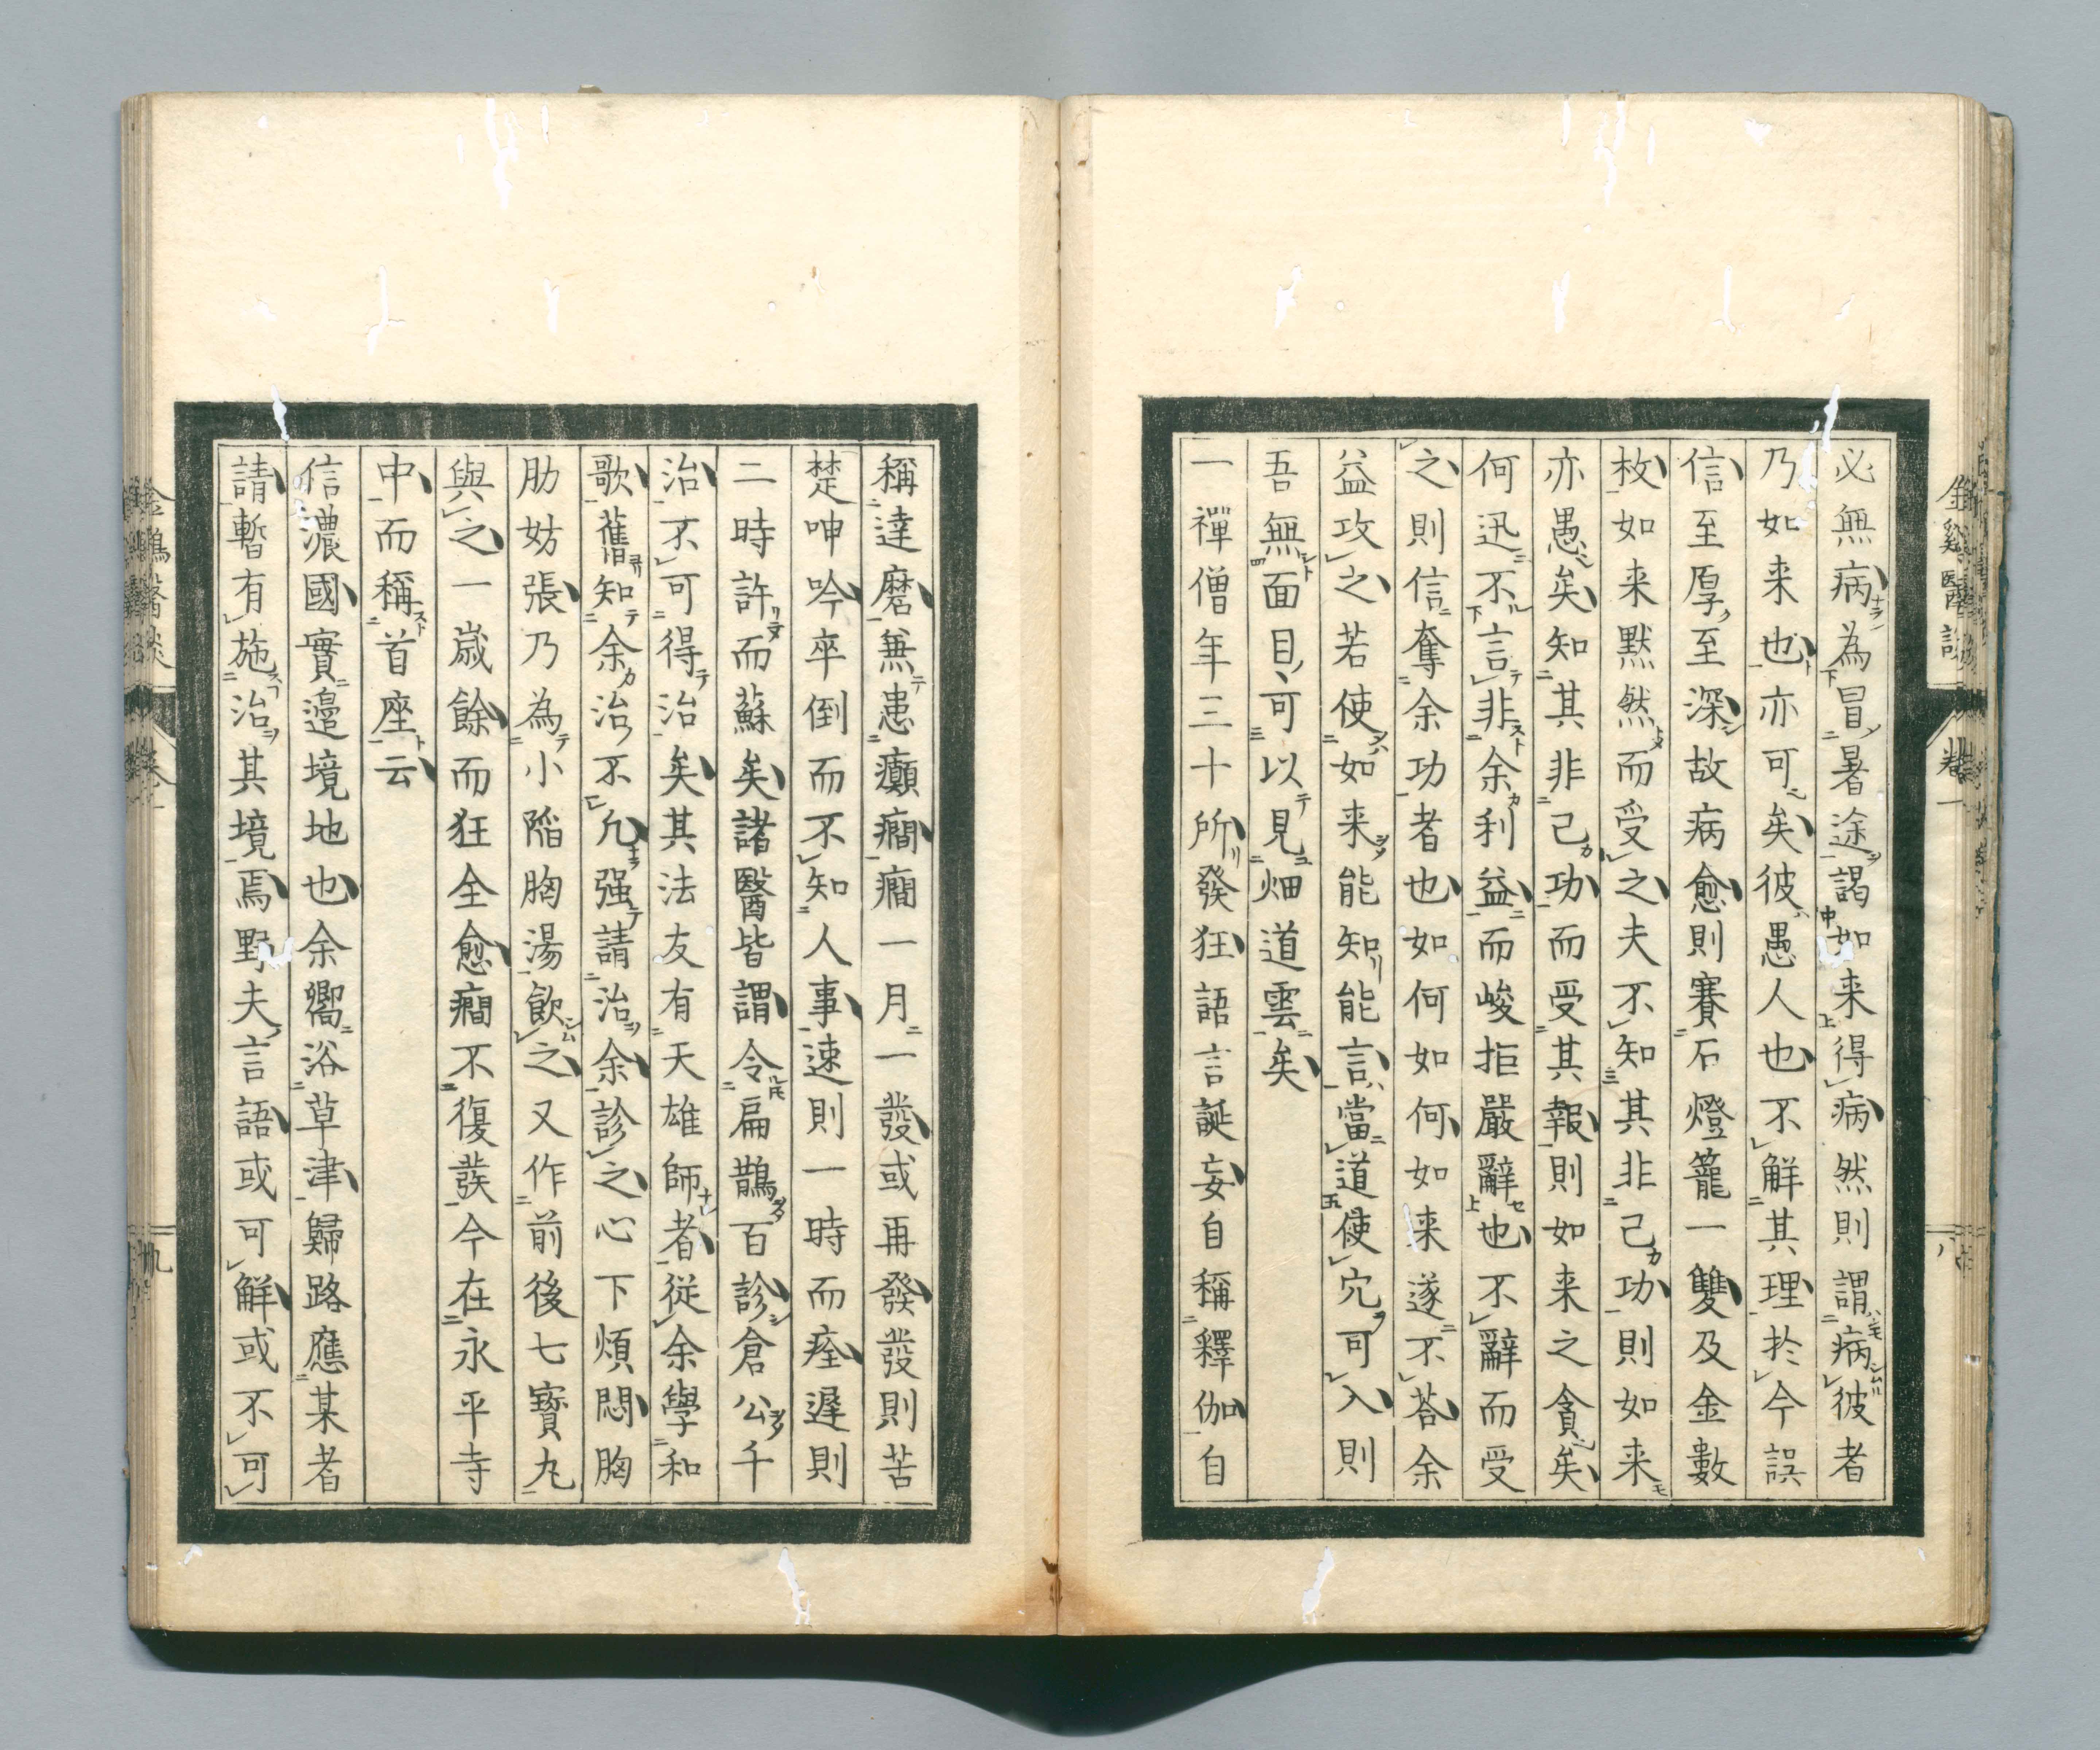 必無病為冒暑途謁如来得病然則謂病彼者
乃如来也亦可矣彼愚人也不解其理於今誤
信至厚至深故病愈則賽石燈籠一雙及金數
枚如来黙然而受之夫不知其非己功則如来
亦愚矣知其非己功而受其報則如来之貪矣
何迅不言非余利益而峻拒嚴辭也不辭而受
之則信奪余功者也如何如何如来遂不荅余
益攻之若使如来能知能言當道使穴可入則
吾無面目可以見畑道雲矣
一禪僧年三十所發狂語言誕妄自稱釋伽自
稱達磨兼患癲癇癇一月一發或再發發則苦
楚呻吟卒倒而不知人事速則一時而痊遲則
二時許而蘇矣諸醫皆謂令扁鵲百診倉公千
治不可得治矣其法友有天雄師者従余學和
歌舊知余治不允强請治余診之心下煩悶胸
肋妨張乃為小陷胸湯飲之又作前後七寳丸
與之一嵗餘而狂全愈癇不復發今在永平寺
中而稱首座云
信濃國實邉境地也余嚮浴草津歸路應某者
請暫有施治其境焉野夫言語或可解或不可